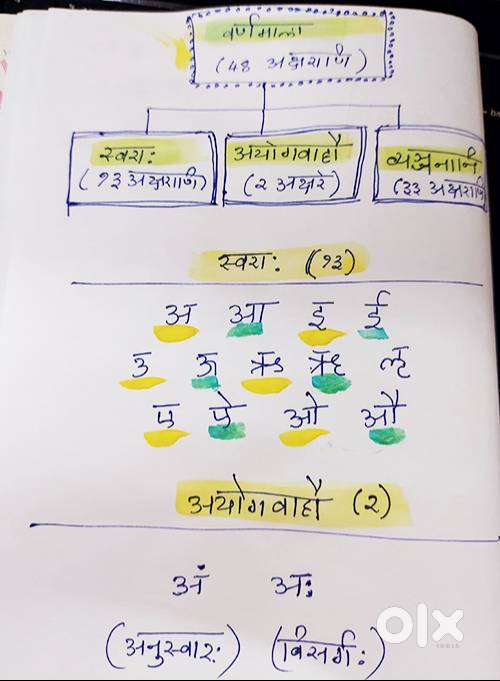 वर्णमाला
(48 अक्षराणि)
स्वराः अयोगवाहौ व्यञ्जनानि
(१३ अक्षराणि) (२ अक्षरे) (३३ अक्षराणि
स्वराः (१३)
अ आ इ ई
उ ऊ ऋ ॠ लृ
ए ऐ ओ औ
अयोगवाहौ (२)
अं अः
(अनुस्वारः) (विसर्गः)
olx